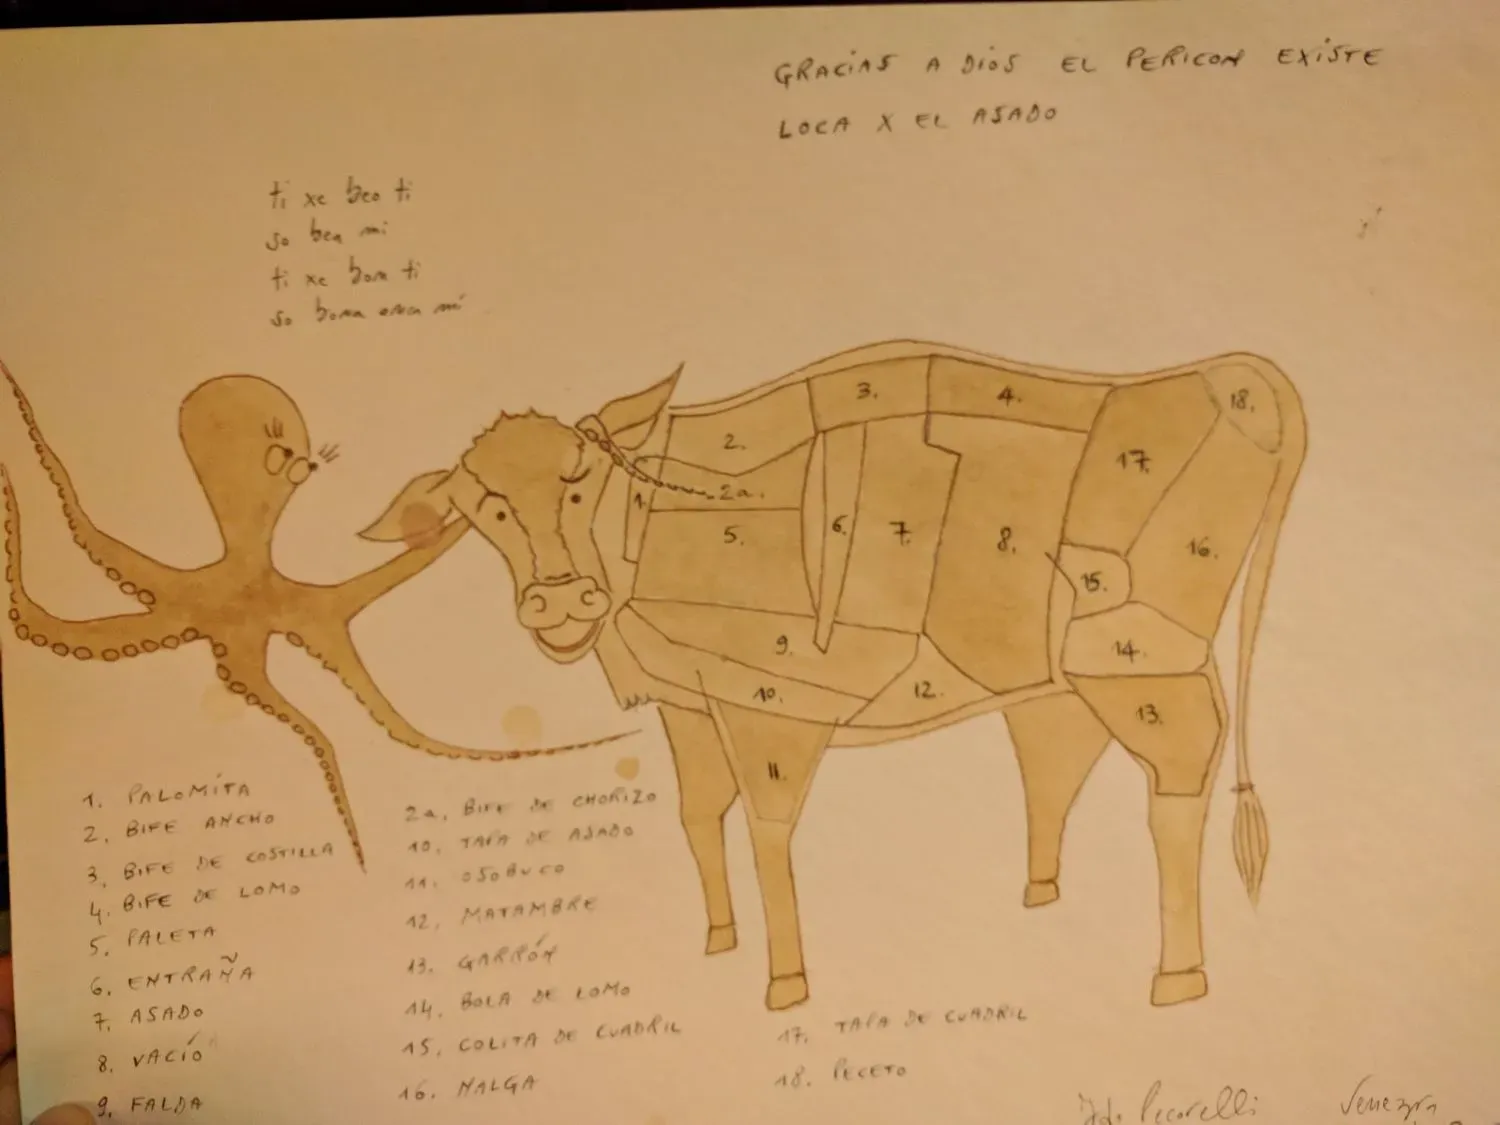 GRACIAS A DIOS EL PERICON EXISTE
LOCA X EL ASADO
ti xe beo ti
so bea mi
ti xe bon ti
so bona anca mi
1.
2.
2a.
3.
4.
5.
6.
7.
8.
9.
10.
11.
12.
13.
14.
15.
16.
17.
18.
1. PALOMITA
2. BIFE ANCHO
3. BIFE DE COSTILLA
4. BIFE DE LOMO
5. PALETA
6. ENTRAÑA
7. ASADO
8. VACÍO
9. FALDA
2a. BIFE DE CHORIZO
10. TAPA DE ASADO
11. OSOBUCO
12. MATAMBRE
13. GARRÓN
14. BOLA DE LOMO
15. COLITA DE CUADRIL
16. NALGA
17. TAPA DE CUADRIL
18. PECETO
Pecorelli Venezia